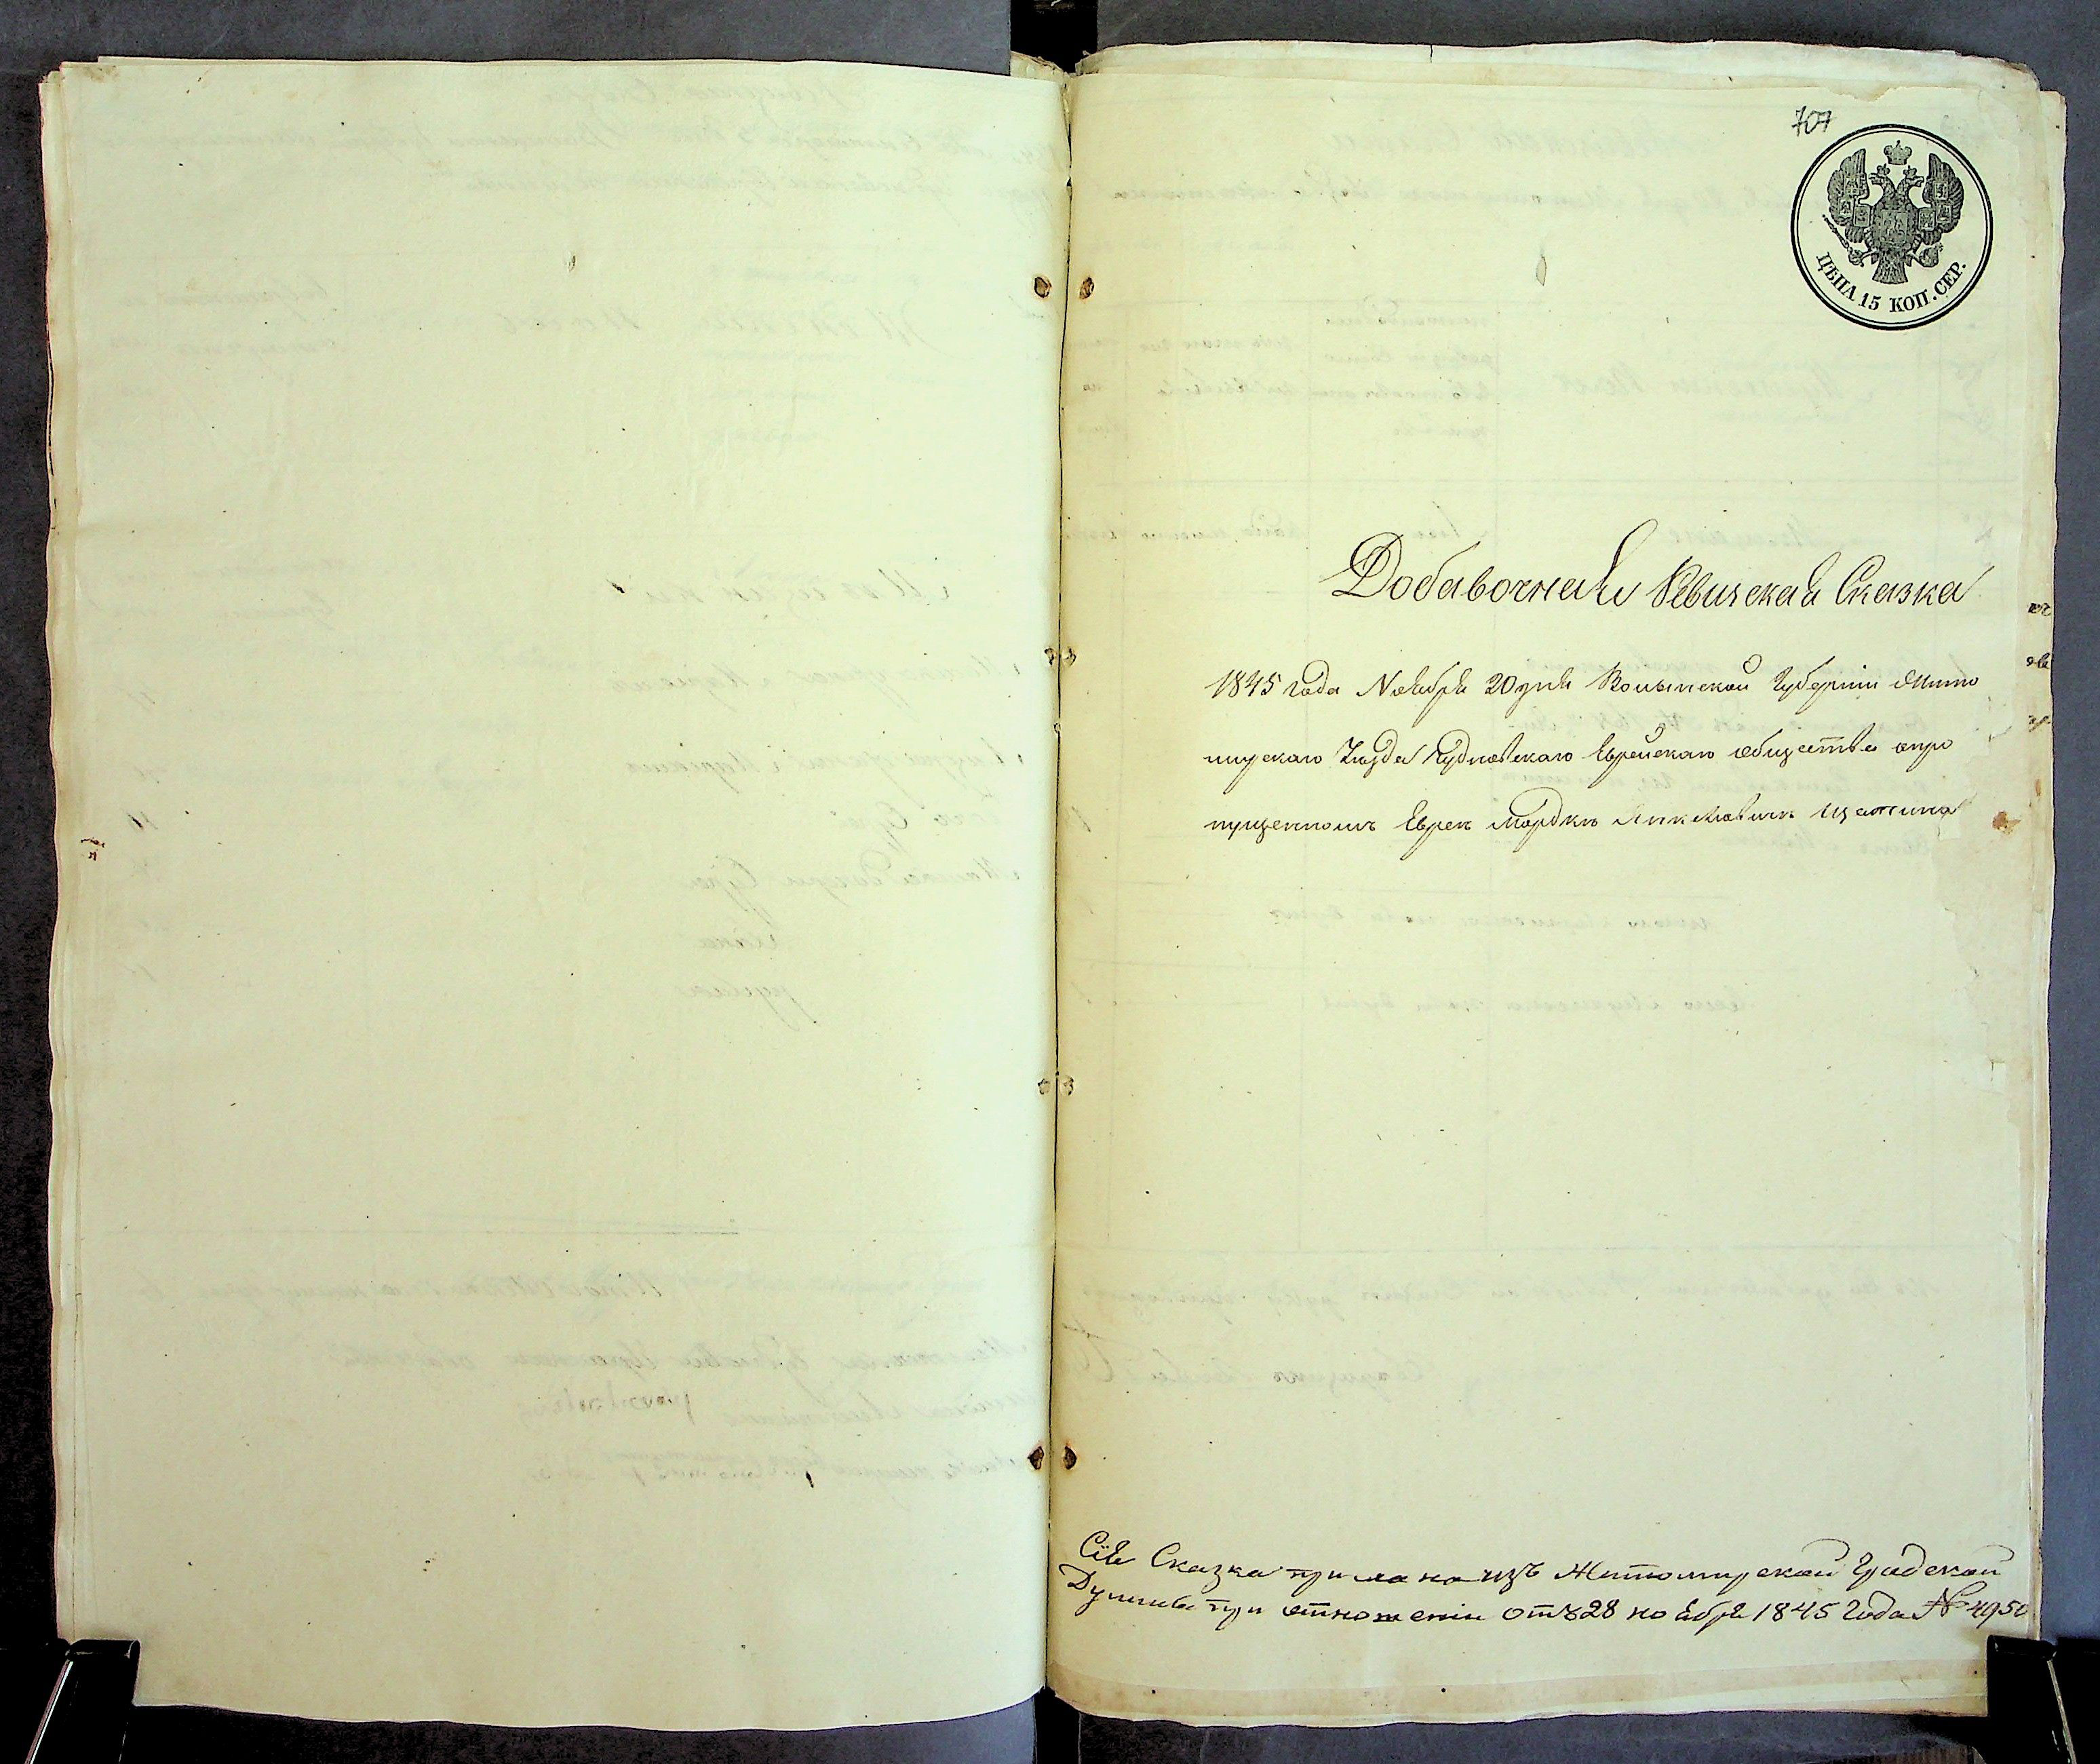 707
ЦѢНА 15 КОП. СЕР.
Добавочная Ревизская Сказка
1845 года Ноября 20 дня Волынской Губерніи Жито
мирскаго Уѣзда Чудновскаго Еврейскаго Общества о про
пущенномъ Евреѣ Мордкѣ Янкелiовичѣ
Сія Сказка прислана изъ Житомирской Градской
Думы при отношеніи отъ 28 ноября 1845 года № 4950